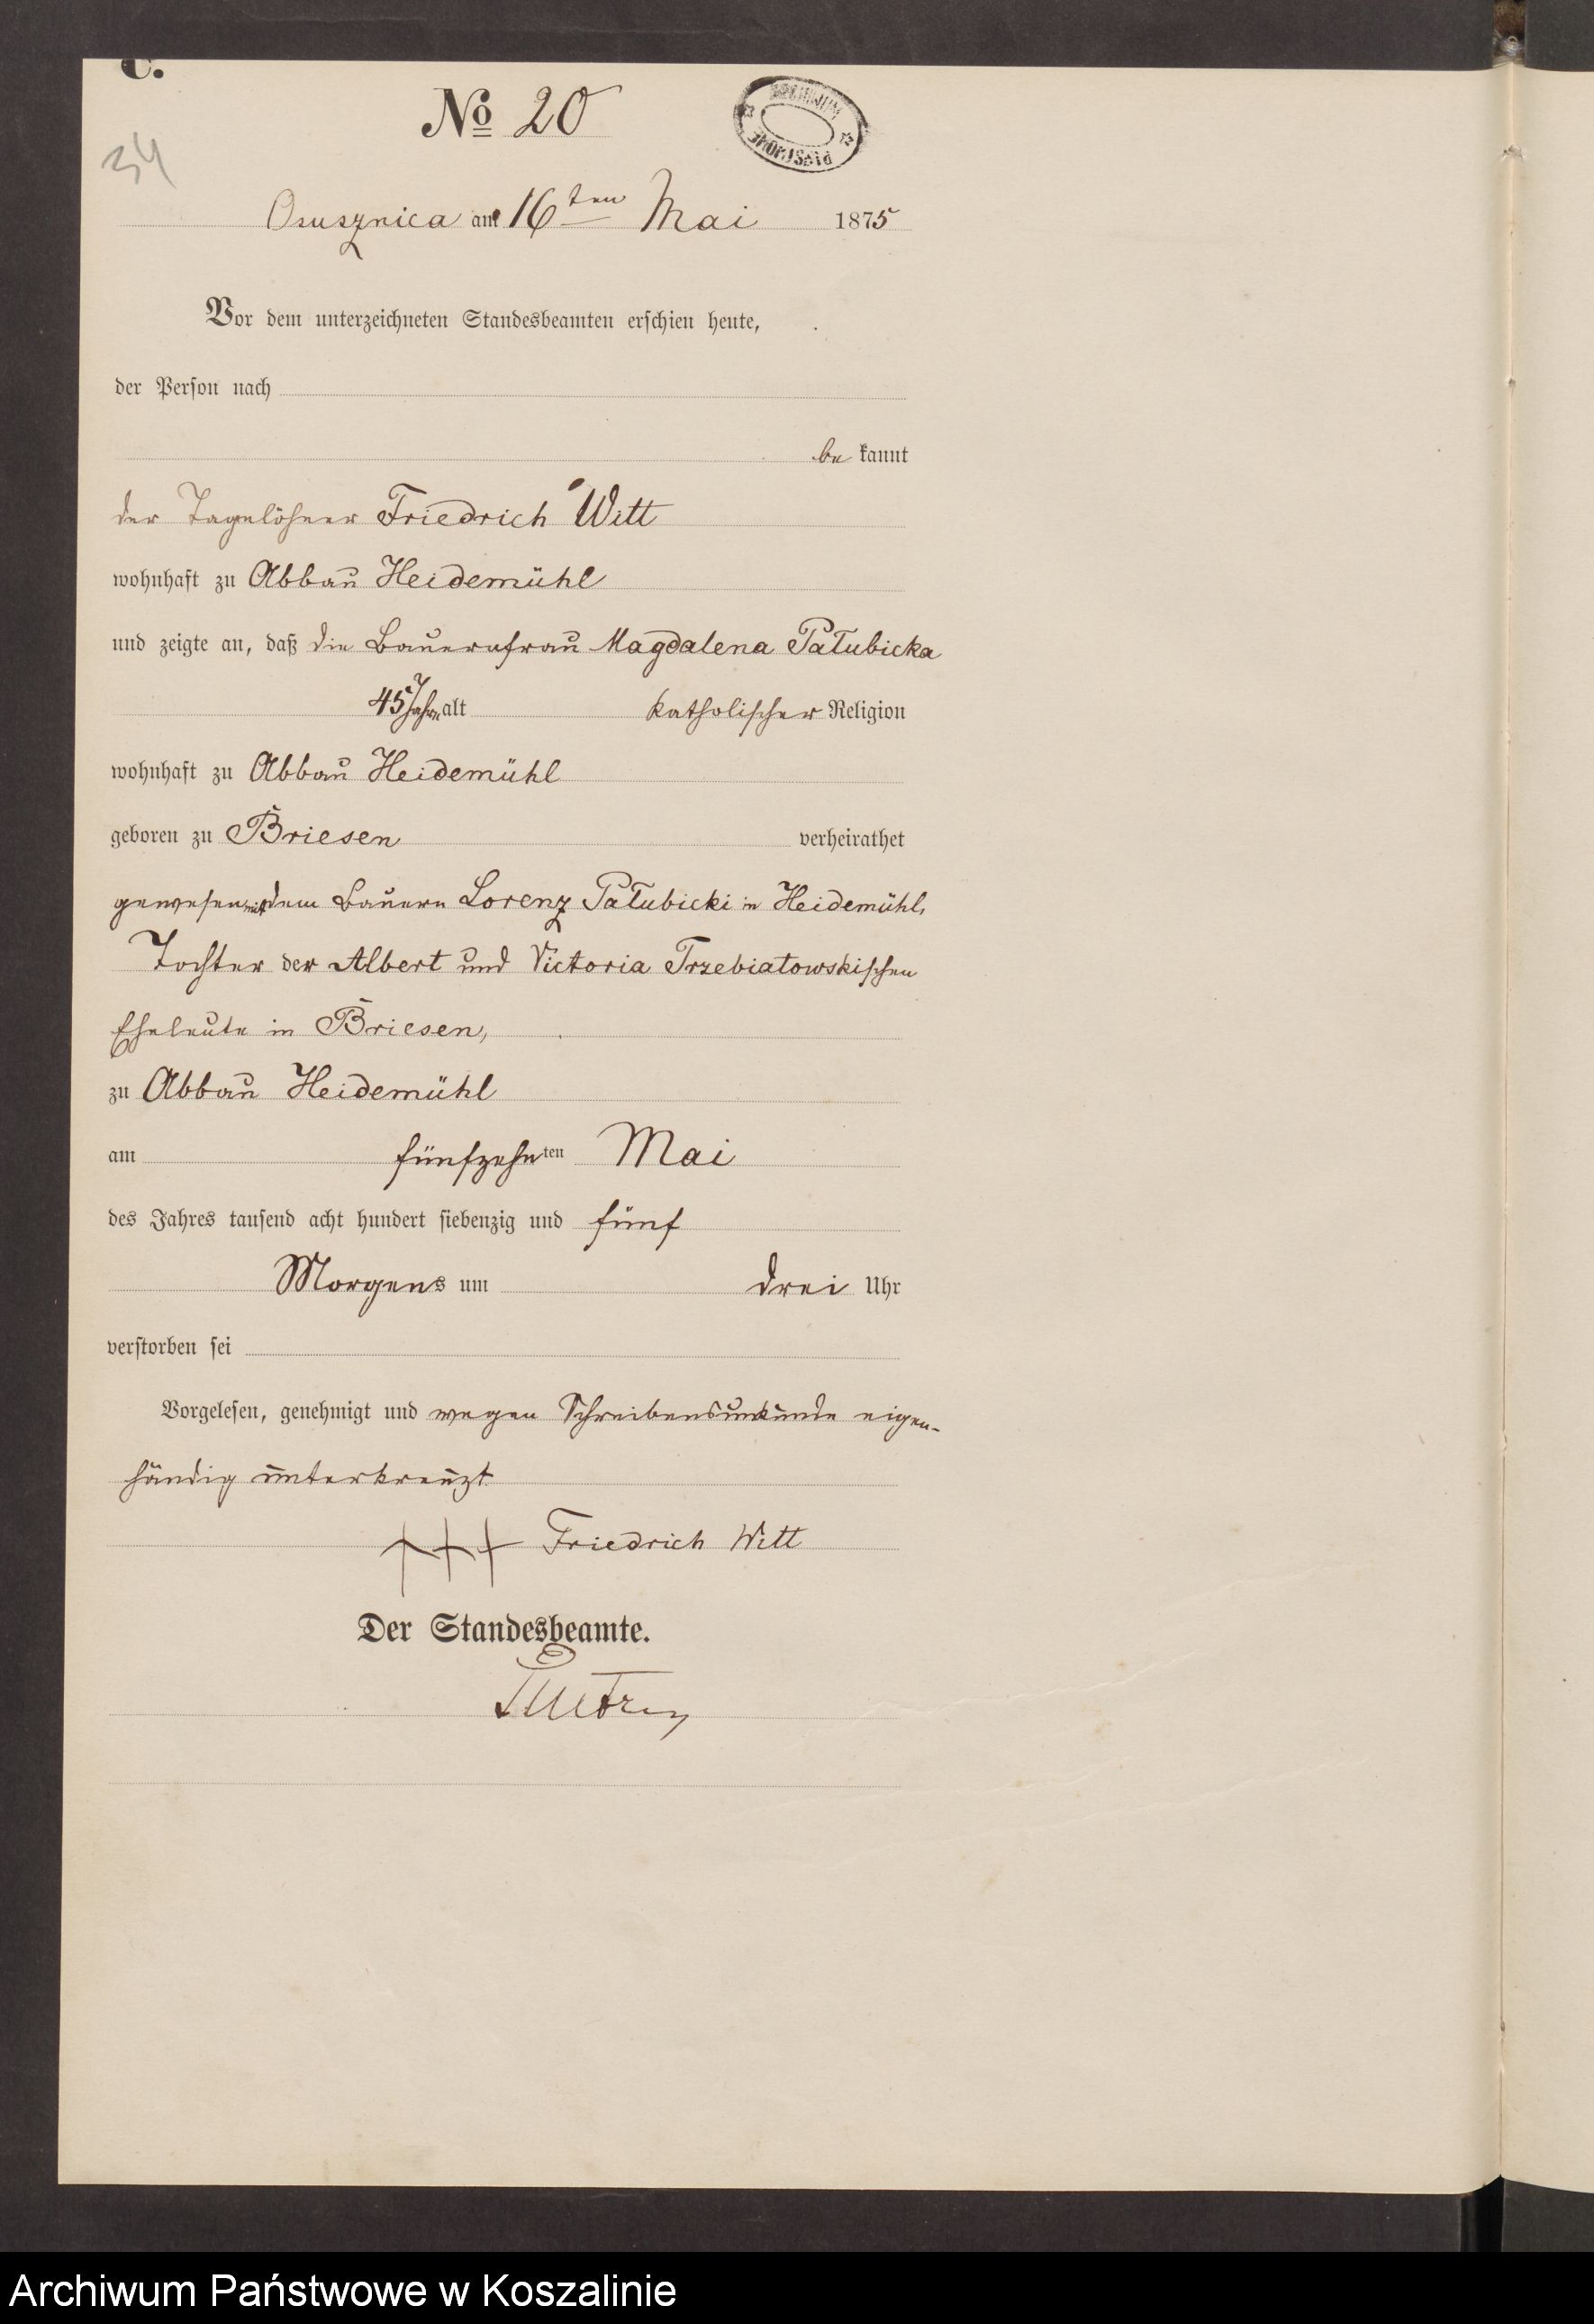 C.
No 20
ARCHIWUM PAŃSTWOWE
34
Osusznica am 16ten Mai 1875
Vor dem unterzeichneten Standesbeamten erschien heute,
der Person nach
be kannt
der Tagelöhner Friedrich Witt
wohnhaft zu Abbau Heidemühl
und zeigte an, daß die Bauernfrau Magdalena Pałubicka
45 Jahre alt katholischer Religion
wohnhaft zu Abbau Heidemühl
geboren zu Briesen verheirathet
gewesen mit dem Bauern Lorenz Pałubicki in Heidemühl,
Tochter der Albert und Victoria Trzebiatowskischen
Eheleute in Briesen,
zu Abbau Heidemühl
am fünfzehnten Mai
des Jahres tausend acht hundert siebenzig und fünf
Morgens um drei Uhr
verstorben sei
Vorgelesen, genehmigt und wegen Schreibensunkunde eigen-
händig unterkreuzt
+++ Friedrich Witt
Der Standesbeamte.
Archiwum Państwowe w Koszalinie